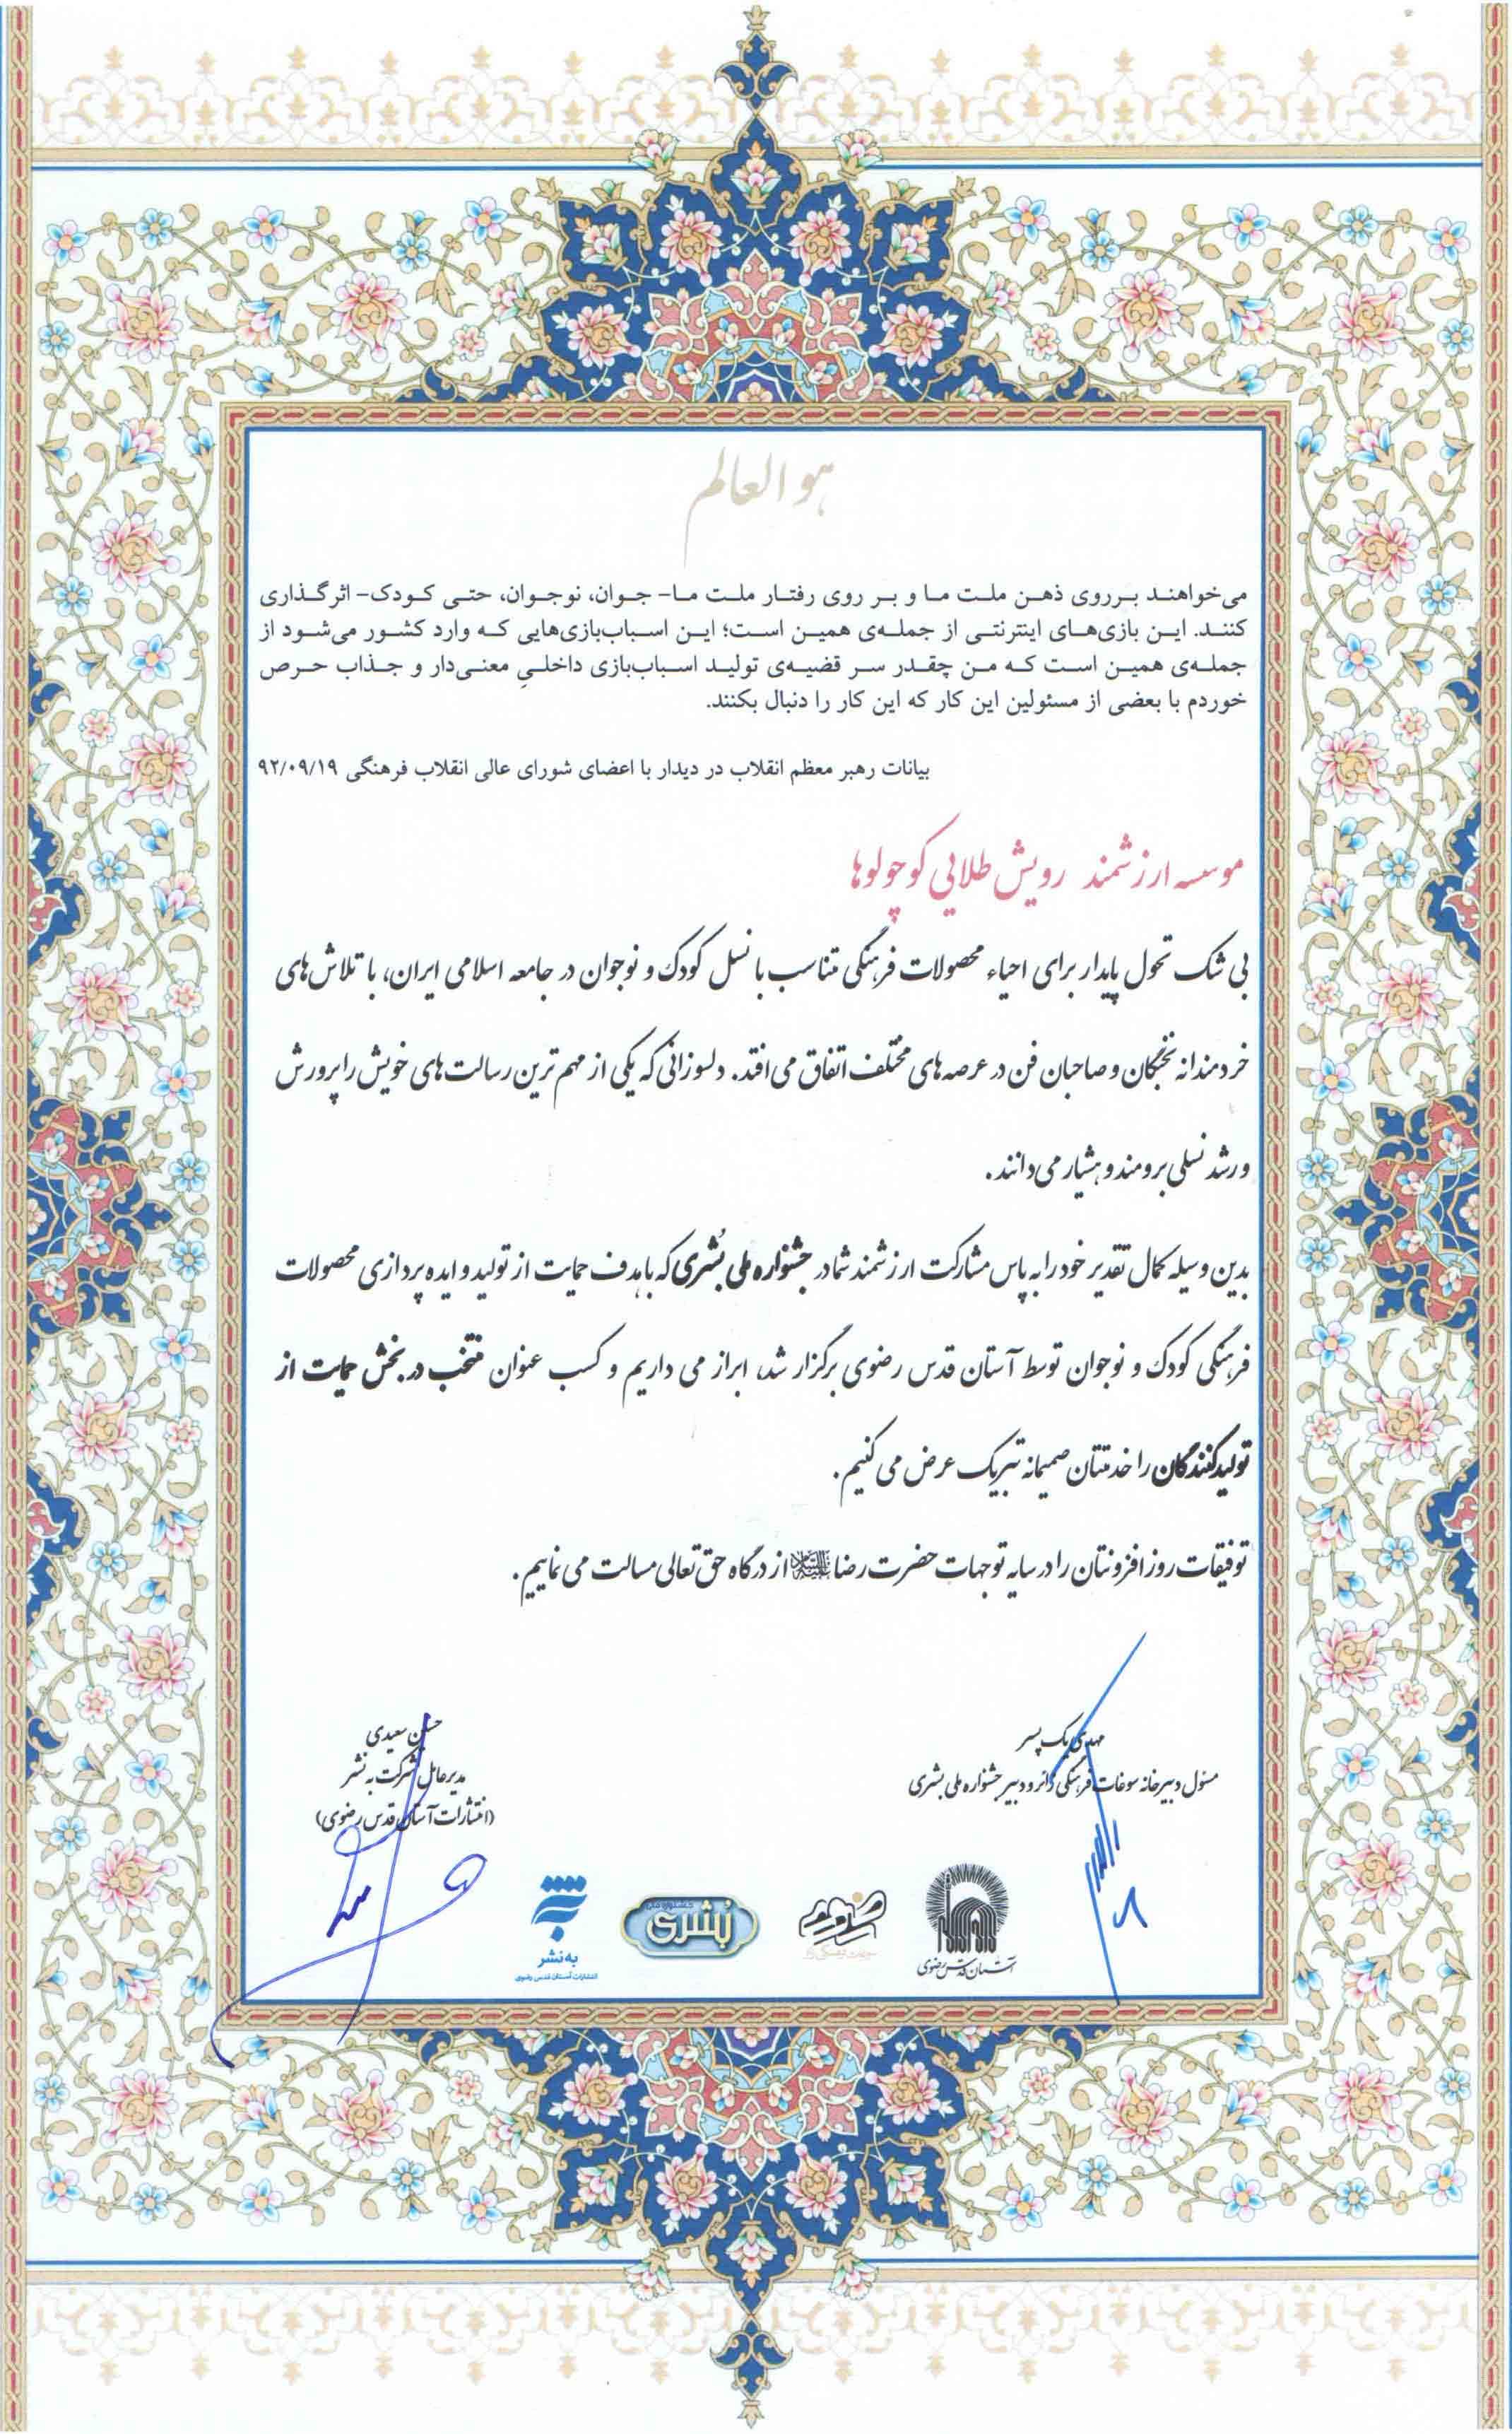 هو العالم
می‌خواهند بر روی ذهن ملت ما و بر روی رفتار ملت ما- جوان، نوجوان، حتی کودک- اثرگذاری
کنند. این بازی‌های اینترنتی از جمله‌ی همین است؛ این اسباب‌بازی‌هایی که وارد کشور می‌شود از
جمله‌ی همین است که من چقدر سر قضیه‌ی تولید اسباب‌بازی داخلیِ معنی‌دار و جذاب حرص
خوردم با بعضی از مسئولین این کار که این کار را دنبال بکنند.
بیانات رهبر معظم انقلاب در دیدار با اعضای شورای عالی انقلاب فرهنگی ۹۲/۰۹/۱۹
موسسه ارزشمند رویش طلایی کوچولوها
بی شک تحول پایدار برای احیاء محصولات فرهنگی متناسب با نسل کودک و نوجوان در جامعه اسلامی ایران، با تلاش های
خردمندانه نخبگان و صاحبان فن در عرصه های مختلف اتفاق می افتد. دلسوزانی که یکی از مهم ترین رسالت های خویش را پرورش
و رشد نسلی برومند و هشیار می دانند.
بدین وسیله کمال تقدیر خود را به پاس مشارکت ارزشمند شما در جشنواره ملی بُشری که با هدف حمایت از تولید و ایده پردازی محصولات
فرهنگی کودک و نوجوان توسط آستان قدس رضوی برگزار شد، ابراز می داریم و کسب عنوان منتخب در بخش حمایت از
تولیدکنندگان را خدمتتان صمیمانه تبریک عرض می کنیم.
توفیقات روزافزونتان را در سایه توجهات حضرت رضا علیه‌السلام از درگاه حق تعالی مسالت می نماییم.
مهدی یک پسر
مسئول دبیرخانه سوغات فرهنگی زائر و دبیر جشنواره ملی بشری
حسین سعیدی
مدیرعامل شرکت به نشر
(انتشارات آستان قدس رضوی)
آستان قدس رضوی
جشنواره ملی
بُشری
به نشر
انتشارات آستان قدس رضوی